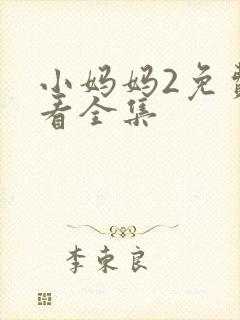 小妈妈2免費
看全集
李東良